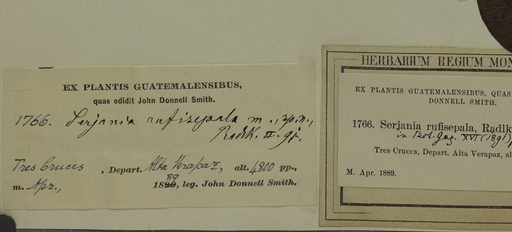 EX PLANTIS GUATEMALENSIBUS,
quas edidit John Donnell Smith.
1766. Serjania rufisepala
Radlk.
Tres Cruces, Depart. Alta Verapaz, alt. 4800 pp.,
m. Apr., 1889, leg. John Donnell Smith.
HERBARIUM REGIUM MON
EX PLANTIS GUATEMALENSIBUS, QUAS
DONNELL SMITH.
1766. Serjania rufisepala, Radlk
in Bot. Gaz. XVI (1891)
Tres Cruces, Depart. Alta Verapaz, al
M. Apr. 1889.